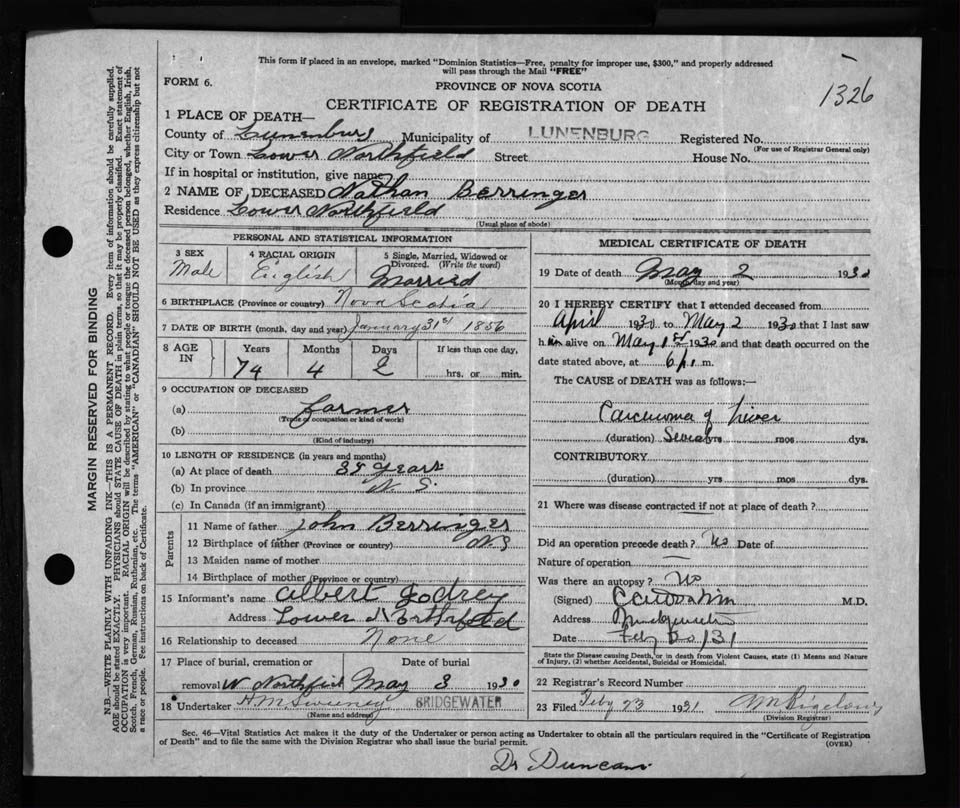 This form if placed in an envelope, marked "Dominion Statistics—Free, penalty for improper use, $300," and properly addressed
will pass through the Mail "FREE"
FORM 6.
PROVINCE OF NOVA SCOTIA
1326
CERTIFICATE OF REGISTRATION OF DEATH
1 PLACE OF DEATH—
County of Lunenburg Municipality of LUNENBURG Registered No.
(For use of Registrar General only)
City or Town Lower Northfield Street House No.
If in hospital or institution, give name
2 NAME OF DECEASED Nathan Berringer
Residence Lower Northfield
(Usual place of abode)
PERSONAL AND STATISTICAL INFORMATION
3 SEX
Male
4 RACIAL ORIGIN
English
5 Single, Married, Widowed or
Divorced. (Write the word)
Married
6 BIRTHPLACE (Province or country) Nova Scotia
7 DATE OF BIRTH (month, day and year) January 31st 1856
8 AGE IN
Years Months Days If less than one day,
74 4 2 hrs. or min.
9 OCCUPATION OF DECEASED
(a) Farmer
(Trade occupation or kind of work)
(b)
(Kind of industry)
10 LENGTH OF RESIDENCE (in years and months)
(a) At place of death years
(b) In province N. S.
(c) In Canada (if an immigrant)
Parents
11 Name of father John Berringer
12 Birthplace of father (Province or country) N.S
13 Maiden name of mother
14 Birthplace of mother (Province or country)
15 Informant's name Albert Godrey
Address Lower Northfield
16 Relationship to deceased None
17 Place of burial, cremation or Date of burial
removal W Northfield May 3 1930
18 Undertaker H M Sweeney BRIDGEWATER
(Name and address)
MEDICAL CERTIFICATE OF DEATH
19 Date of death May 2 1930
(Month, day and year)
20 I HEREBY CERTIFY that I attended deceased from
April 1930 to May 2 1930 that I last saw
him alive on May 1st 1930 and that death occurred on the
date stated above, at 6 p. m.
The CAUSE of DEATH was as follows:
Carcinoma of Liver
(duration) Several yrs mos dys.
CONTRIBUTORY
(duration) yrs mos dys.
21 Where was disease contracted if not at place of death?
Did an operation precede death? No Date of
Nature of operation
Was there an autopsy? No
(Signed) M.D.
Address Bridgewater
Date Feby 20/31
State the Disease causing Death, or in death from Violent Causes, state (1) Means and Nature
of Injury, (2) whether Accidental, Suicidal or Homicidal.
22 Registrar's Record Number
23 Filed Feby 23 1931 Bigelow
(Division Registrar)
Sec. 46—Vital Statistics Act makes it the duty of the Undertaker or person acting as Undertaker to obtain all the particulars required in the "Certificate of Registration
of Death" and to file the same with the Division Registrar who shall issue the burial permit.
(OVER)
Dr Duncan
MARGIN RESERVED FOR BINDING
N.B.—WRITE PLAINLY WITH UNFADING INK—THIS IS A PERMANENT RECORD. Every item of information should be carefully supplied.
AGE should be stated EXACTLY. PHYSICIANS should STATE CAUSE OF DEATH in plain terms, so that it may be properly classified. Exact statement of
OCCUPATION is very important. RACIAL ORIGIN will be described by stating to what people or tongue a deceased person belonged, whether English, Irish,
Scotch, French, German, Russian, Ruthenian, etc. The terms "AMERICAN" or "CANADIAN" SHOULD NOT BE USED as they express citizenship but not
a race or people. Fee instructions on back of Certificate.